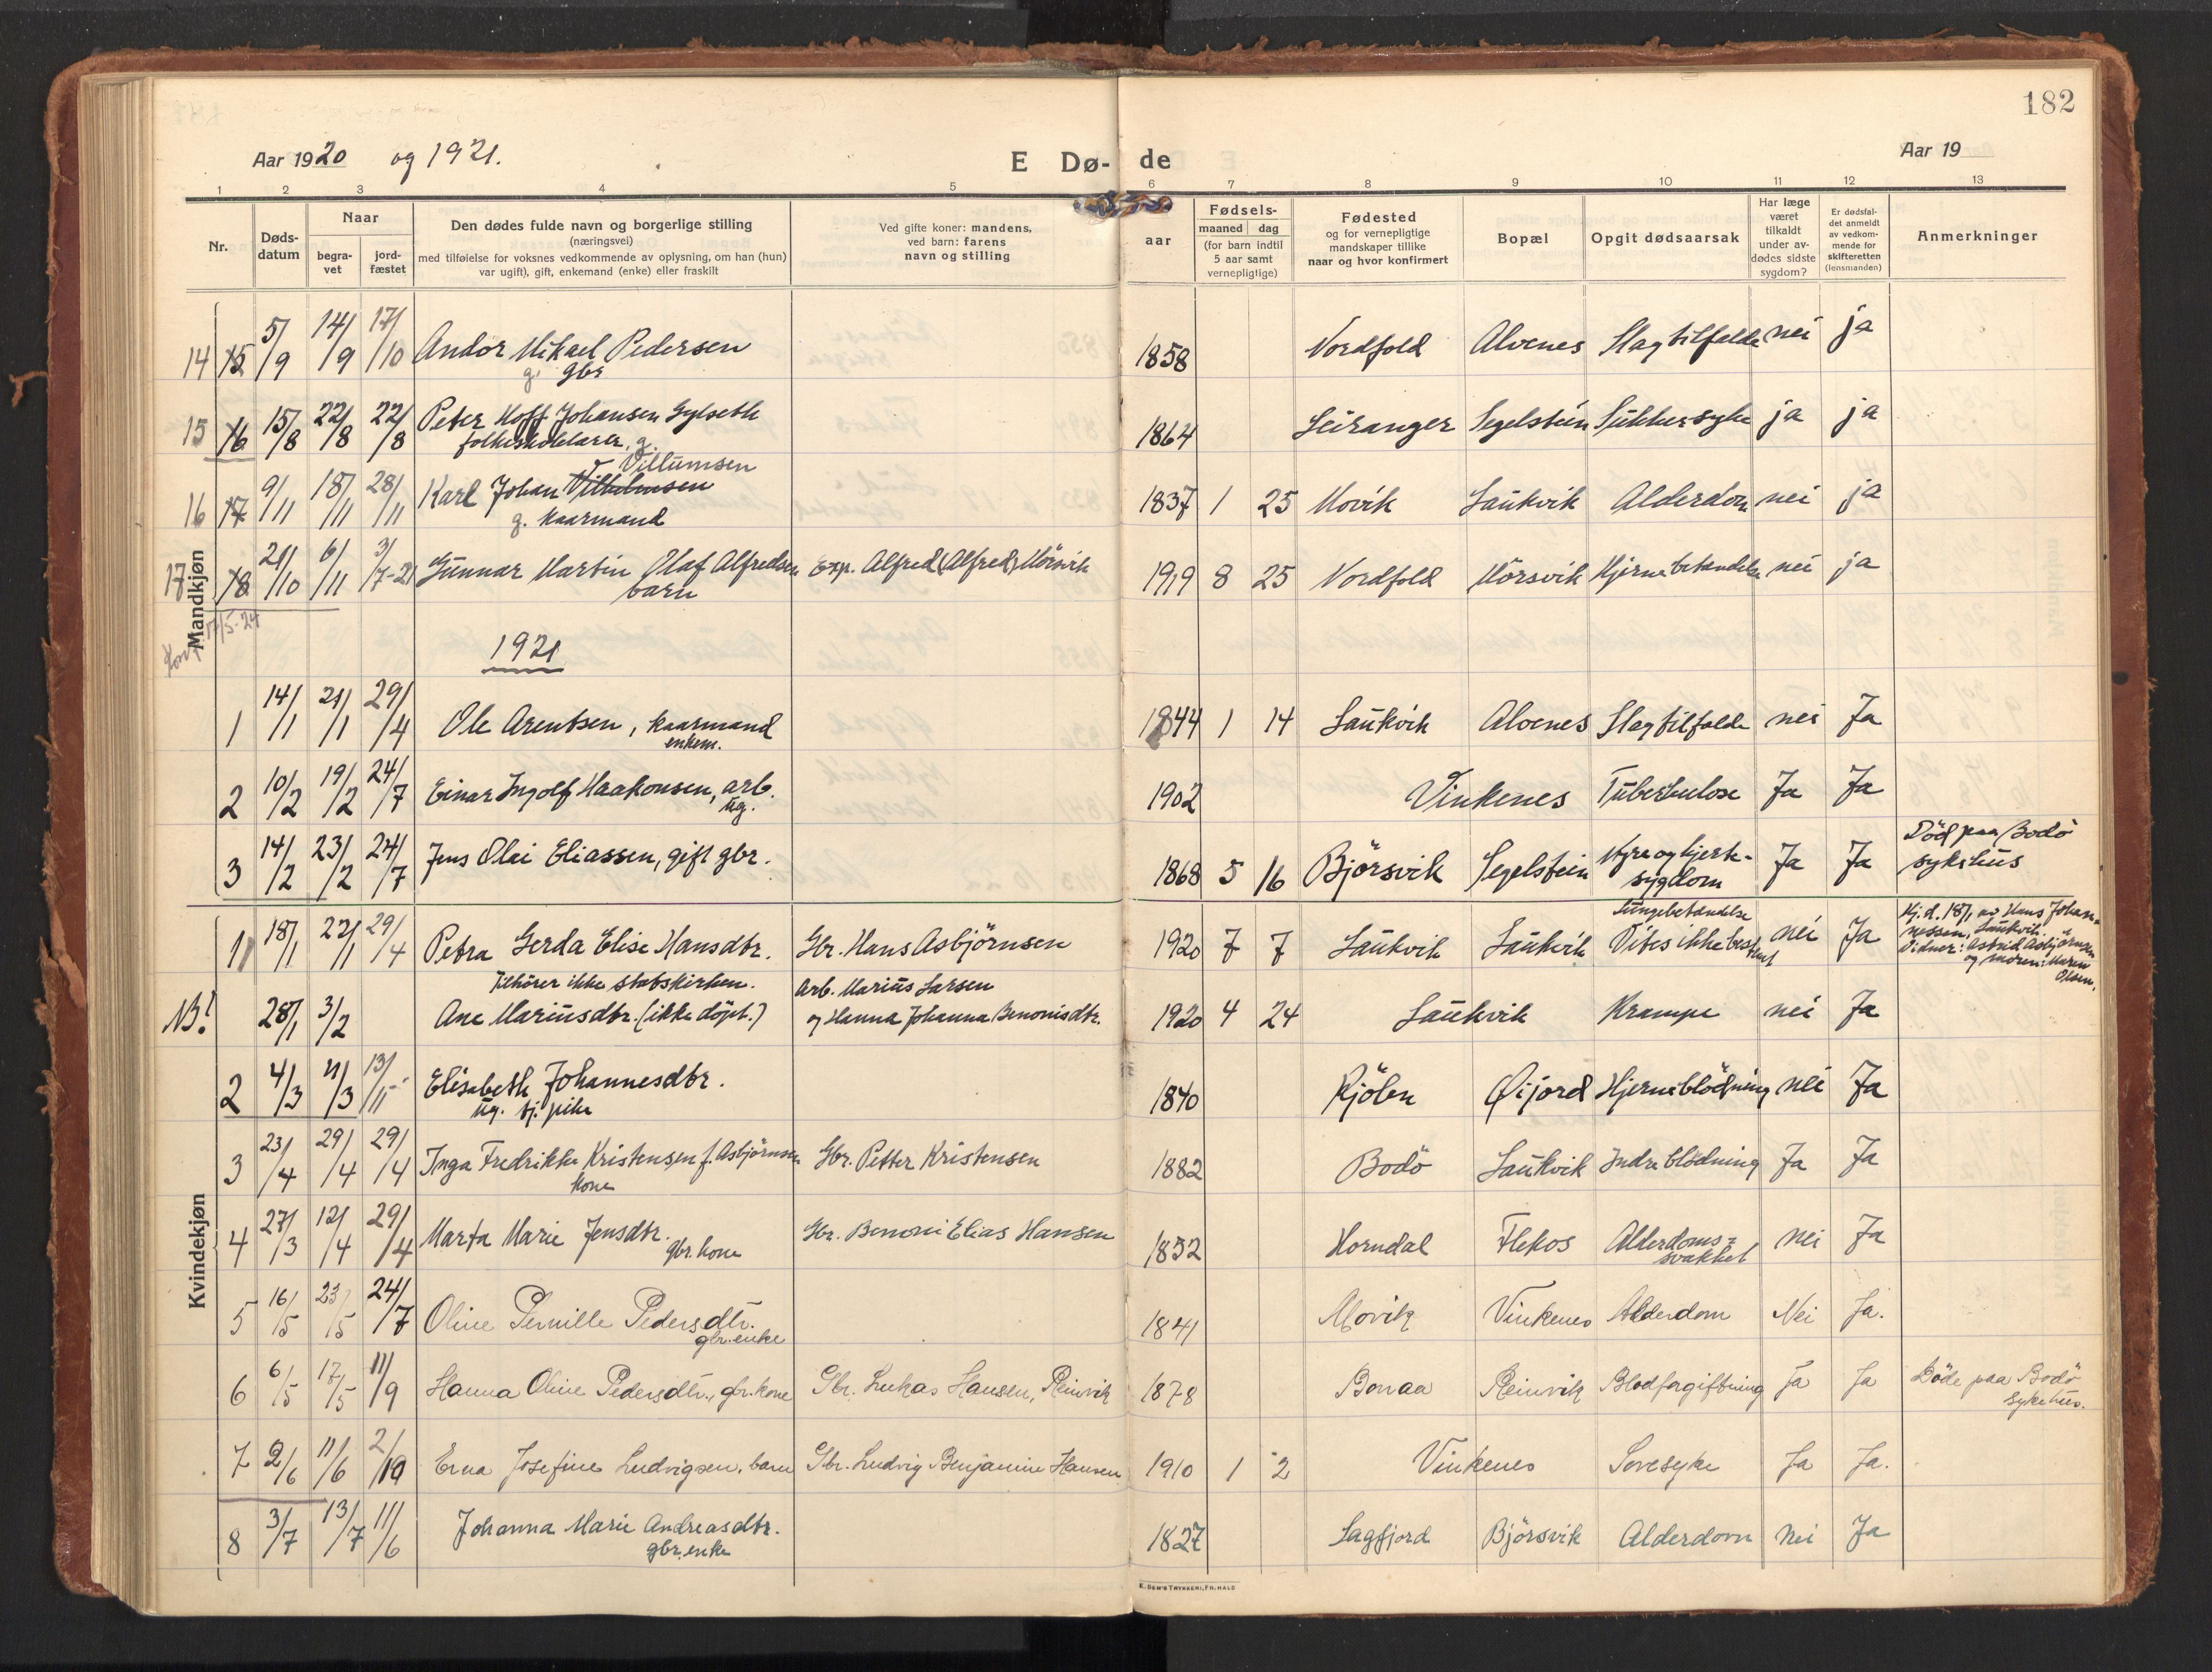 182
Aar 1920 og 1921.
E Dø- de
Aar 19
1 2 3 4 5 6 7 8 9 10 11 12 13
Nr.
Døds-
datum
Naar
begra-
vet
jord-
fæstet
Den dødes fulde navn og borgerlige stilling
(næringsvei)
med tilføielse for voksnes vedkommende av oplysning, om han (hun)
var ugift), gift, enkemand (enke) eller fraskilt
Ved gifte koner: mandens,
ved barn: farens
navn og stilling
aar
Fødsels-
maaned dag
(for barn indtil
5 aar samt
vernepligtige)
Fødested
og for vernepligtige
mandskaper tillike
naar og hvor konfirmert
Bopæl
Opgit dødsaarsak
Har læge
været
tilkaldt
under av-
dødes sidste
sygdom?
Er dødsfal-
det anmeldt
av vedkom-
mende for
skifteretten
(lensmanden)
Anmerkninger
Mandkjøn
14 15 5/9 14/9 17/10 Andor Mikael Pedersen 1858 Nordfold Alvenes Slagtilfælde nei ja
g. gbr
15 16 15/8 22/8 22/8 Peter Hoff Johansen Gylseth 1864 Leiranger Segelstein Sukkersyke ja ja
folkeskolelærer, g.
Villumsen
16 17 9/11 18/11 28/11 Karl Johan Vilhelmsen 1837 1 25 Movik Laukvik Alderdom nei ja
g. kaarmand
17 18 21/10 6/11 3/7-21 Gunnar Martin Olaf Alfredsen Exp. Alfred (Alfred) Mörsvik 1919 8 25 Nordfold Mörsvik Hjernebetændelse nei ja
barn
17/5-24
1921
1 14/1 21/1 29/4 Ole Arentsen, kaarmand 1844 1 14 Laukvik Alvenes Slagtilfælde nei Ja
enkem.
2 10/2 19/2 24/7 Einar Ingolf Haakonsen, arb. 1902 Vinkenes Tuberkulose Ja Ja
ug.
3 14/2 23/2 24/7 Jens Olai Eliassen, gift gbr. 1868 5 16 Björsvik Segelstein Nyre og hjerte- Ja Ja Död paa Bodö
sygdom sykehus
Kvindekjøn
Lungebetændelse
1 18/1 22/1 29/4 Petra Gerda Elise Hansdtr. Gbr. Hans Asbjörnsen 1920 7 7 Laukvik Laukvik Vites ikke bestemt nei Ja Hj.d. 18/1 av Hans Johan-
nessen, Laukvik.
Vidner: Astrid Asbjörnsen
og moren: Maren
Olsen.
Tilhörer ikke statskirken. Arb. Marius Larsen
NB! 28/1 3/2 Ane Mariusdtr. (ikke döpt.) og Hanna Johanna Benonisdtr. 1920 4 24 Laukvik Krampe nei Ja
2 4/3 11/3 13/11 Elisabeth Johannesdtr. 1840 Kjöbn Øijord Hjerneblödning nei Ja
ug. tj. pike
3 23/4 29/4 29/4 Inga Fredrikke Kristensen f. Asbjörnsen Gbr. Petter Kristensen 1882 Bodö Laukvik Indre blödning Ja Ja
kone
4 27/3 12/4 29/4 Marta Marie Jensdtr. Gbr. Benoni Elias Hansen 1852 Horndal Flekos Alderdoms= nei Ja
gbr. kone svakhet
5 16/5 23/5 24/7 Oline Pernille Pedersdtr. 1841 Movik Vinkenes Alderdom Nei Ja.
gbr. enke
6 6/5 17/5 11/9 Hanna Oline Pedersdtr., gbr. kone Gbr. Lukas Hansen, Reinvik 1878 Bonaa Reinvik Blodforgiftning Ja Ja Döde paa Bodö
sykehus.
7 2/6 11/6 2/10 Erna Josefine Ludvigsen, barn Gbr. Ludvig Benjamin Hansen 1910 1 2 Vinkenes Sovesyke Ja Ja.
8 3/7 13/7 11/6 Johanna Marie Andreasdtr. 1827 Sagfjord Björsvik Alderdom Nei Ja
gbr. enke
E. SEM'S TRYKKERI, FR.HALD